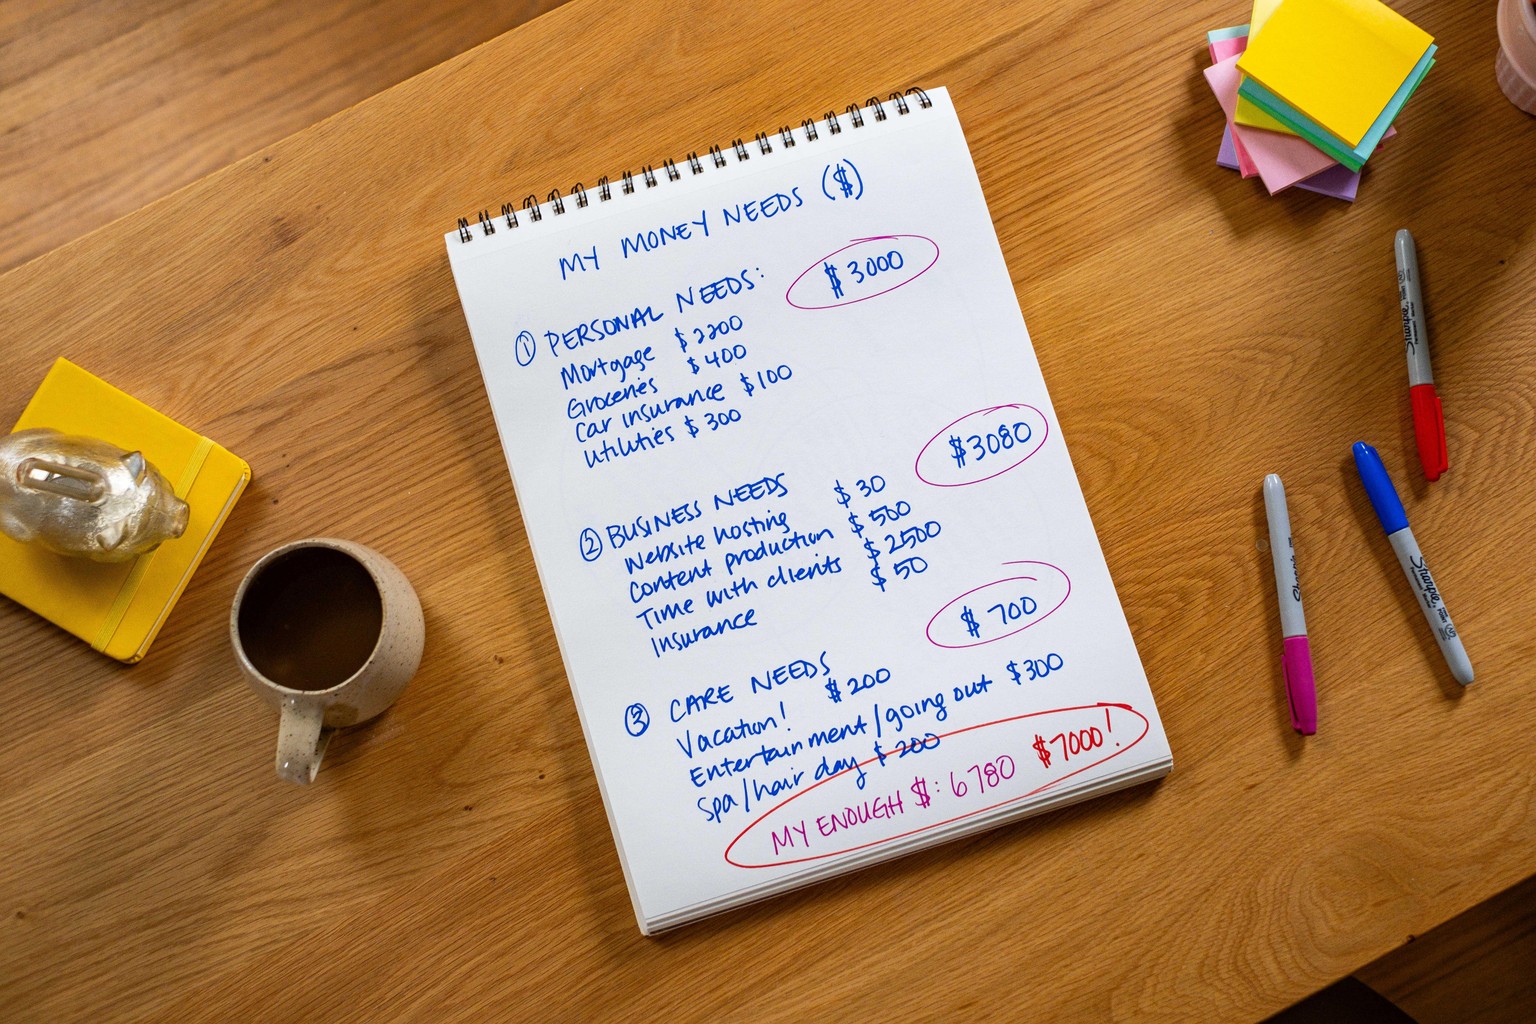 MY MONEY NEEDS ($)
① PERSONAL NEEDS: $3000
Mortgage $2200
Groceries $400
Car insurance $100
Utilities $300
② BUSINESS NEEDS $3080
Website hosting $30
Content production $500
Time with clients $2500
Insurance $50
③ CARE NEEDS $700
Vacation! $200
Entertainment/going out $300
Spa/hair day $200
MY ENOUGH $: 6780 $7000!
Sharpie
Sharpie
Sharpie